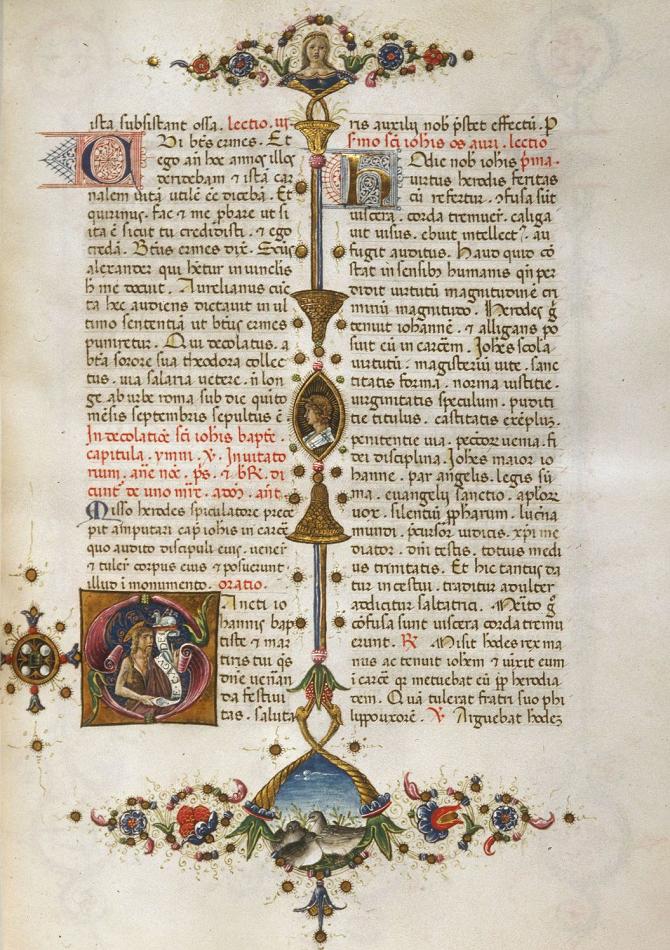 ista subsistant ossa. lectio. iii.
Ubi bt̄s ermes. Et
ego añ hoc annos illos
deridebam & istā car
nalem uitā utilē eē dicebā. Et
quirinus. fac & me p̱bare ut si
ita ē sicut tu credidisti. & ego
credā. Bt̄us ermes dix̄. Sc̄us
alexander qui het̄ur in uinclis
h̄ me docuit. Aurelianus cūc
ta hec audiens dictauit in ul
timo sententiā ut bt̄us ermes
puniretur. Qui decolatus. a
bt̄a sorore sua theodora collec
tus. uia salaria uetere. ñ lon
ge ab urbe roma sub die quito
mēsis septembris sepultus ē
In decolatiōe sc̄i iohis bapt̄e.
capitula. ymni. ℣. Inuitato
rium. añe noc̄. p̄s. & b℟. di
cunt̄ de uno mr̄e. ad oñ. añt
Misso herodes spiculatore prece
pit amputari cap̄ iohis in carcē
quo audito discipuli eius. uener̄
& tuler̄ corpus eius & posuerunt
illud i monumento. oratio.
Sancti io
hannis bap
tiste & mar
tiris tui q̄s
dn̄e ueñan
da festiui
tas. saluta
ris auxilij nob̄ p̄stet effectū. P
S̄mo sc̄i iohis os auri. lectio
Hodie nob̄ iohis p̄ma.
uirtus herodis feritas
cū refertur. ɔfusa sūt
uiscera. corda tremuer̄. caliga
uit uisus. ebuit intellect̄. au
fugit auditus. Haud quid cō
stat in sensib̄ humanis qn̄ per
didit uirtutū magnitudinē cri
minū magnitudo. Herodes g̊
tenuit iohannē. & alligans po
suit eū in carcēm. Iohes scola
uirtutū. magisteriū uite. sanc
titatis forma. norma iustitie.
uirginitatis speculum. pudici
tie titulus. castitatis exēpluz.
penitentie uia. pecc̄or uenia. fi
dei disciplina. Iohes maior io
hanne. par angelis. legis sū
ma. euangelij sanctio. ap̄lor̄
uox. silentiū p̱pharum. lucr̄na
mundi. p̱cursor iudicis. xp̄i me
diator. dn̄i testis. totius medi
us trinitatis. Et hic tantus da
tur incestui. traditur adulter
addicitur saltatrici. Merito g̊
cōfusa sunt uiscera corda tremu
erunt. ℟ Misit hodes rex ma
nus ac tenuit iohem & uixit eum
i carcē q̄ metuebat eū p̱p herodia
dem. Quā tulerat fratri suo phi
lippo uxorē. ℣ Arguebat hodez